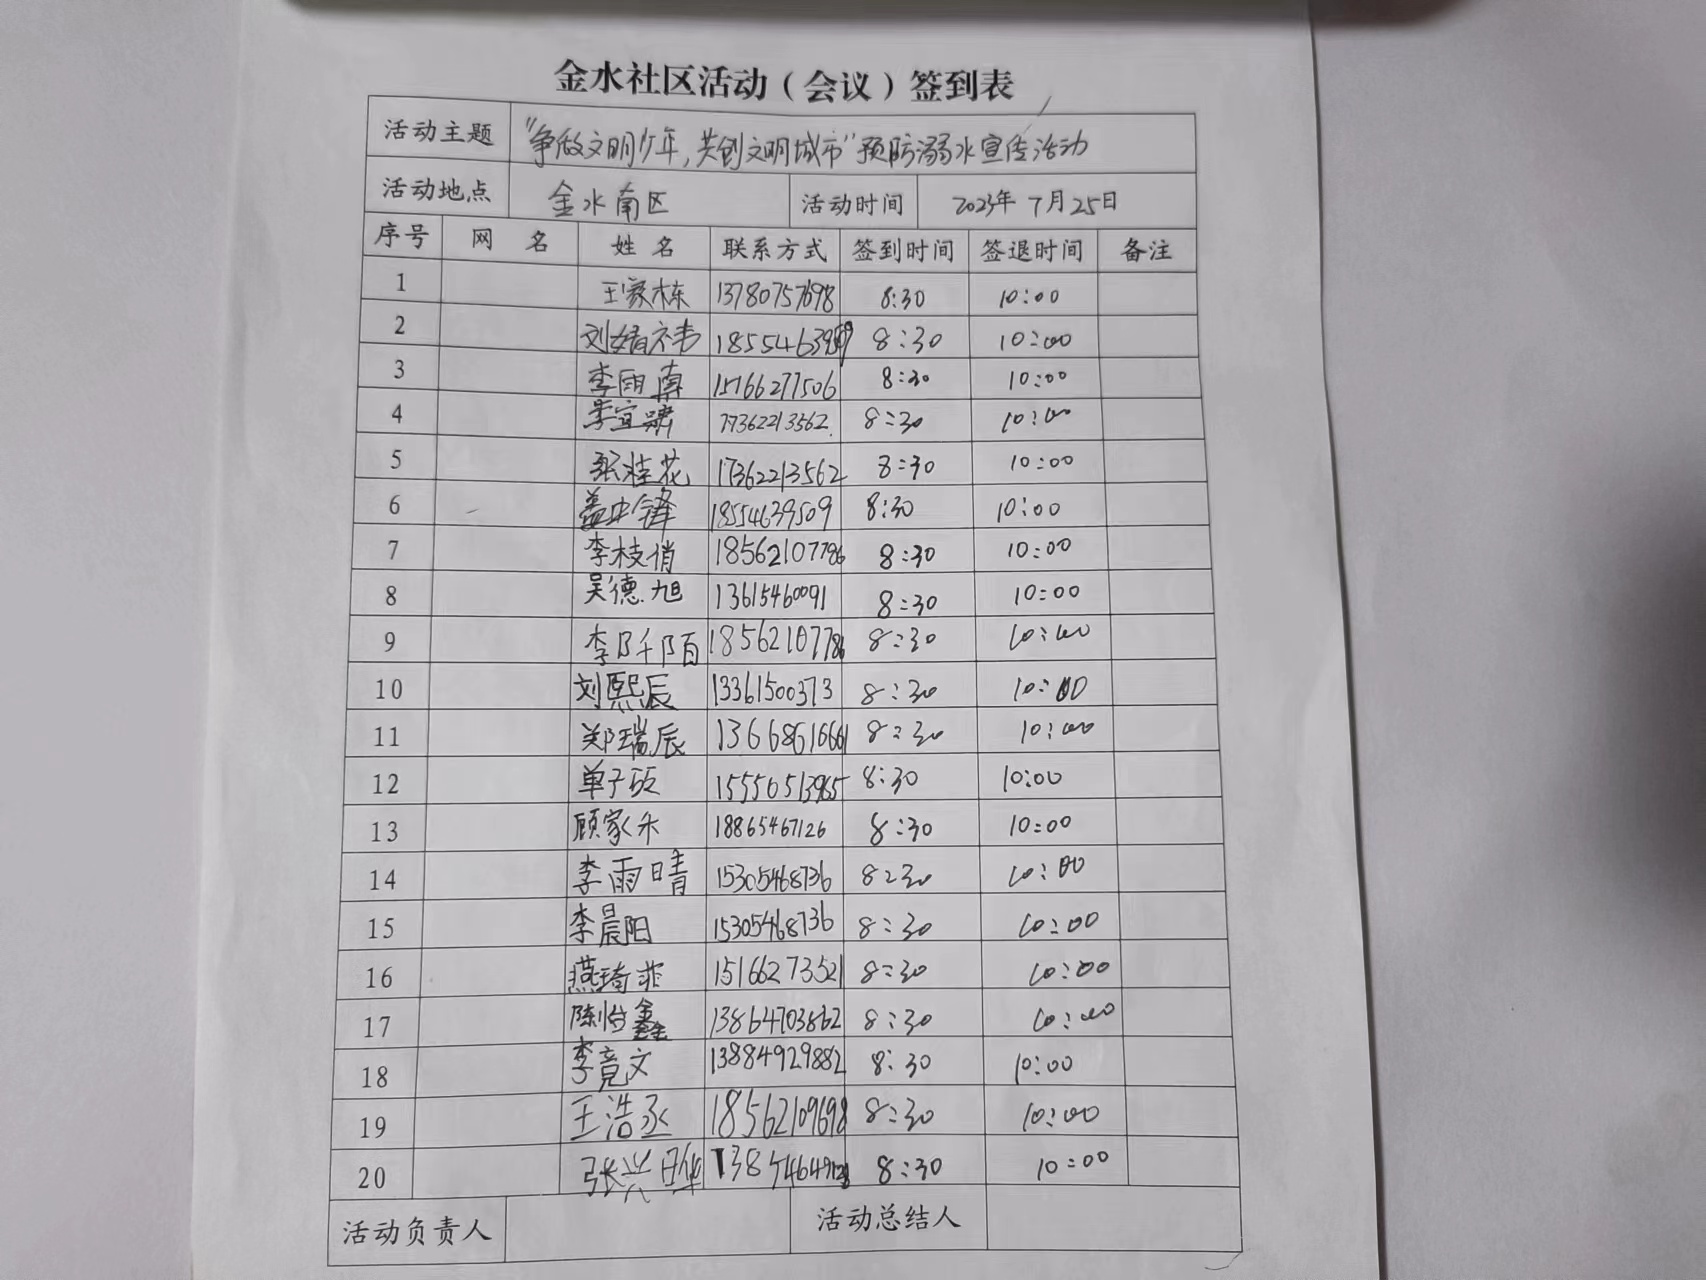 金水社区活动（会议）签到表
活动主题 "争做文明少年,共创文明城市"预防溺水宣传活动
活动地点 金水南区 活动时间 2023年7月25日
序号 网名 姓名 联系方式 签到时间 签退时间 备注
1 王家栋 13780757698 8:30 10:00
2 刘婧祎 8:30 10:00
3 李雨南 15166277506 8:30 10:00
4 李宜啸 17362213562 8:30 10:00
5 张桂花 17362213562 8:30 10:00
6 盖中锋 18554639509 8:30 10:00
7 李枝俏 18562107786 8:30 10:00
8 吴德旭 13615460091 8:30 10:00
9 李阡陌 18562107786 8:30 10:00
10 刘熙辰 13361500373 8:30 10:00
11 郑瑞辰 13668616661 8:30 10:00
12 单子硕 15556513965 8:30 10:00
13 顾家禾 18865467126 8:30 10:00
14 李雨晴 15305468736 8:30 10:00
15 李晨阳 15305468736 8:30 10:00
16 燕琦菲 15166273521 8:30 10:00
17 陈怡鑫 13864703862 8:30 10:00
18 李竟文 13884929882 8:30 10:00
19 王浩丞 18562109698 8:30 10:00
20 张兴晔 8:30 10:00
活动负责人 活动总结人